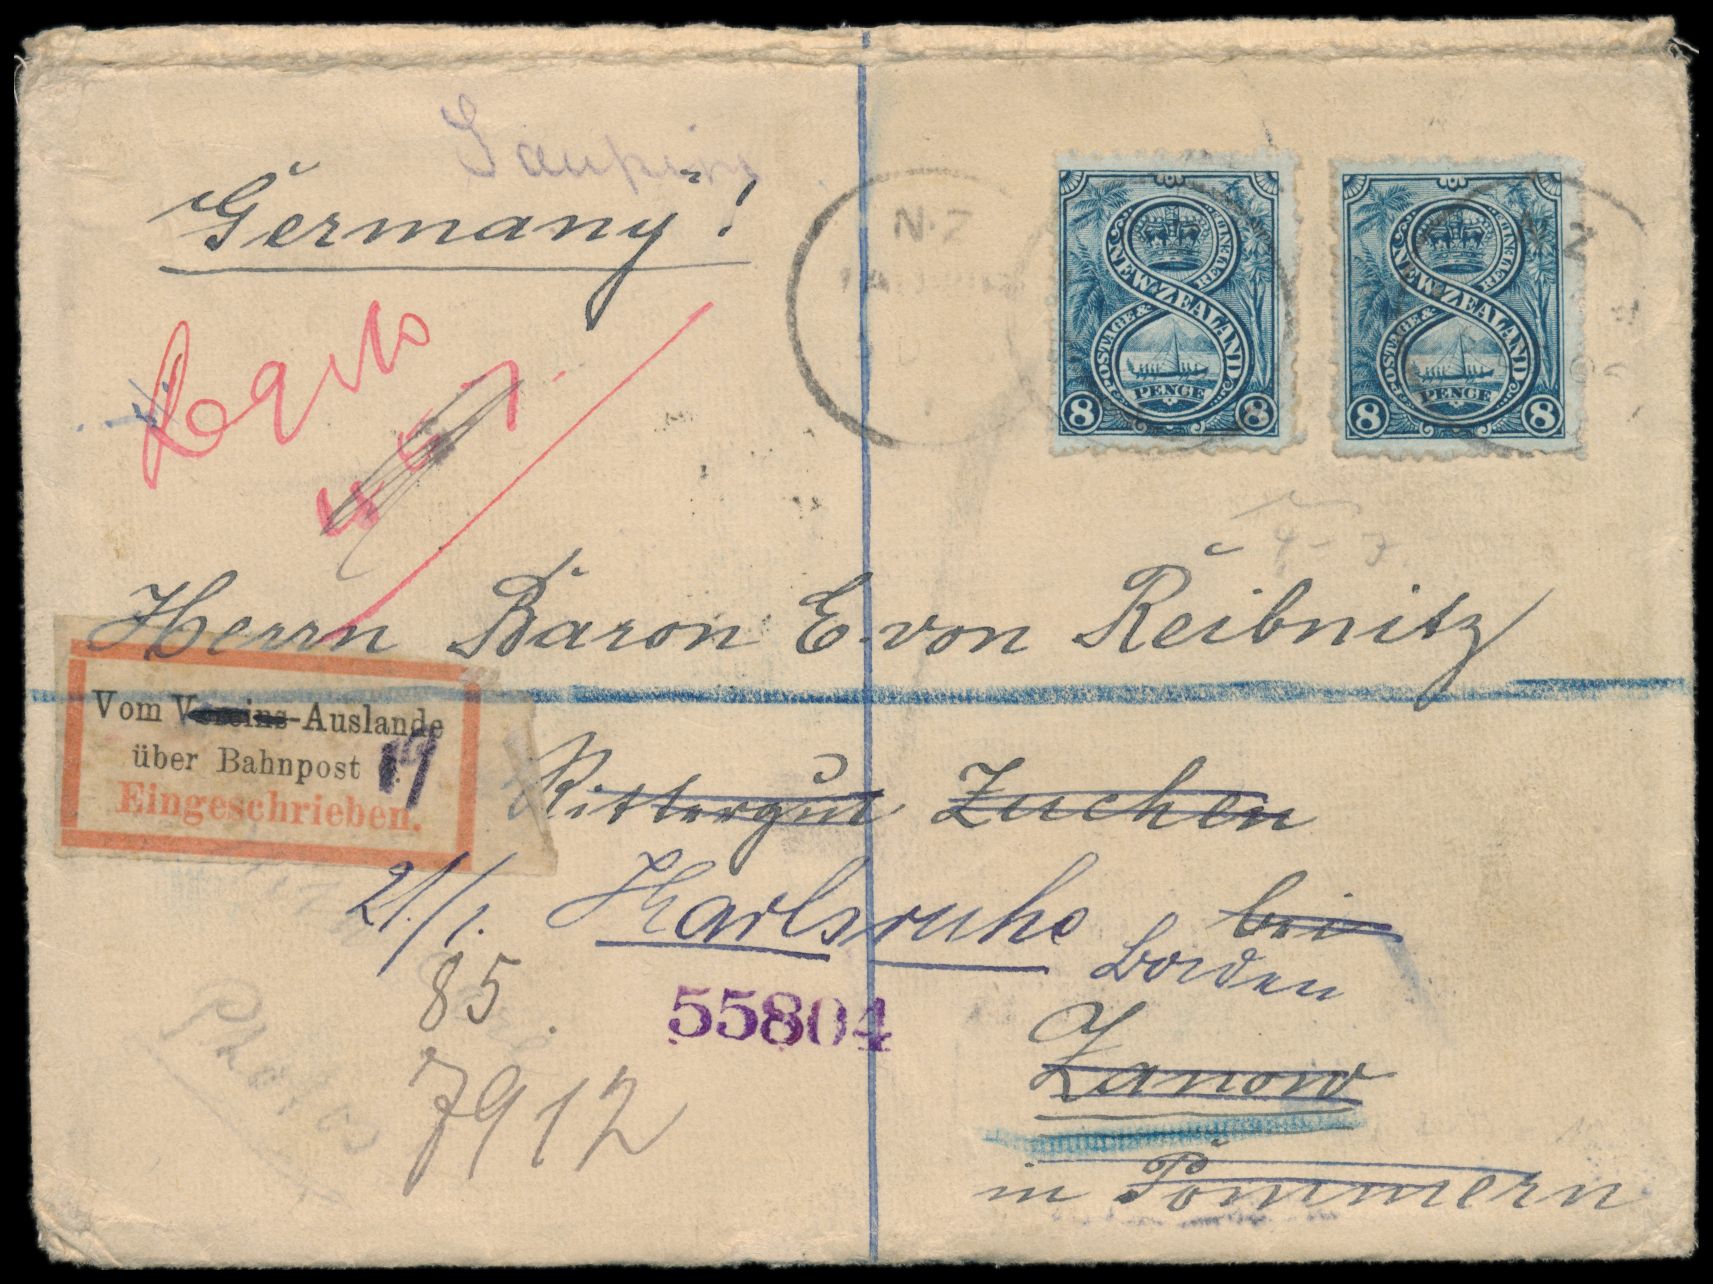 Germany!
N.Z
N Z
NEW ZEALAND
POSTAGE & REVENUE
PENCE
8 8
NEW ZEALAND
POSTAGE & REVENUE
PENCE
8 8
Herrn Baron E. von Reibnitz
Vom Vereins-Auslande
über Bahnpost 19
Eingeschrieben.
Rittergut Zuchen
21/1. Karlsruhe bei
Baden
85
55804
Zanow
7912
in Pommern